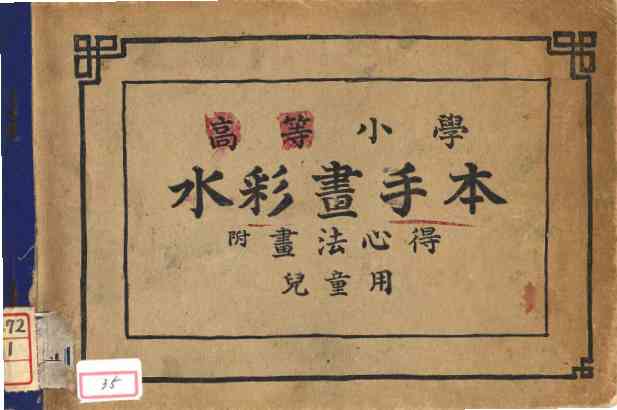 高等小學
水彩畫手本
附畫法心得
兒童用
72
1
35